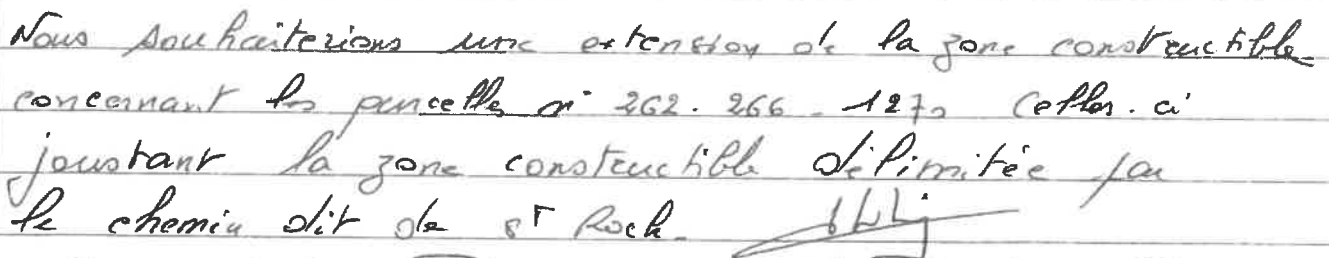 Nous souhaiterions une extension de la zone constructible
concernant les parcelles n° 262. 266 - 1270 Celles-ci
joustant la zone constructible délimitée par
le chemin dit de sT Roch.